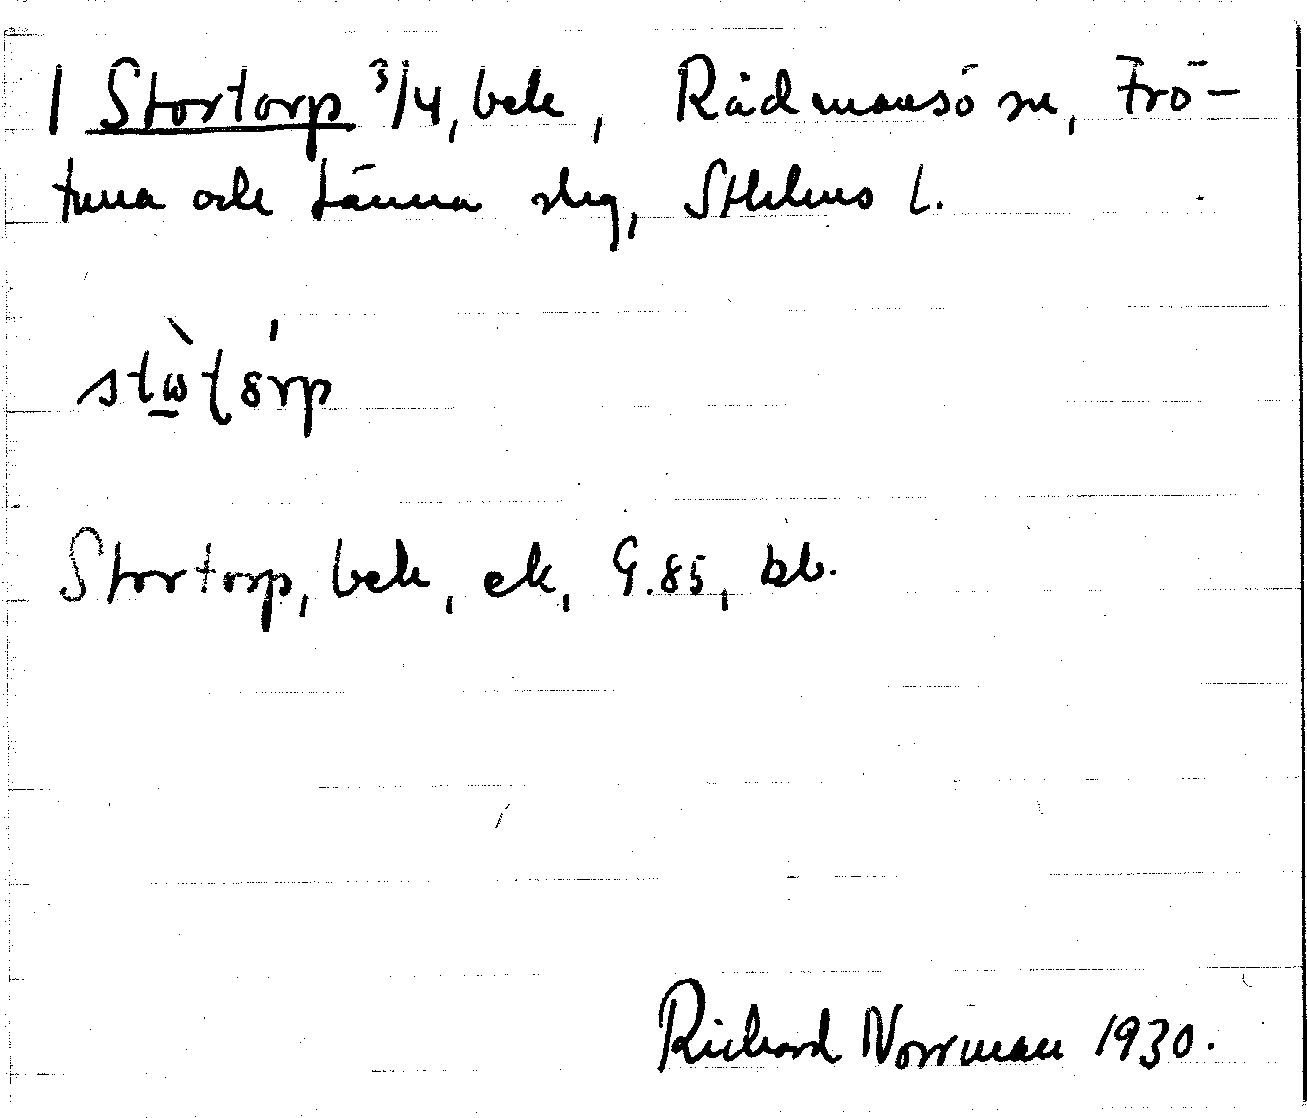 1 Stortorp 3/4, bek, Rådmansö sn, Frö-
tuna och Länna slg, Sthlms l.
stὼ̲ʈȣ́rp
Stortorp, bek, ek, G.85, kb.
Richard Norrman 1930.